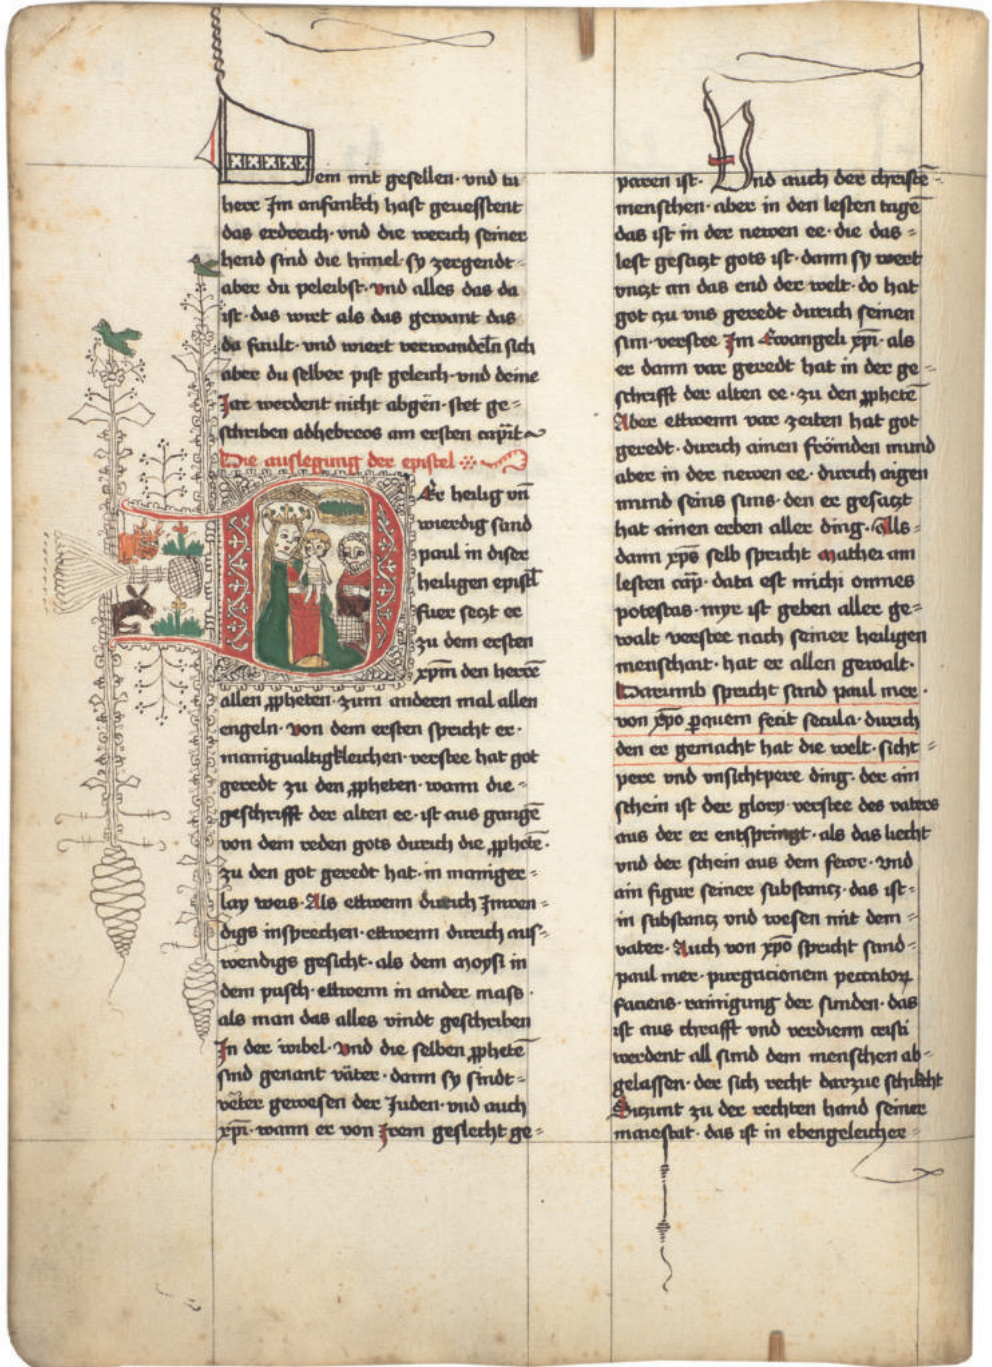 dein mit gesellen · vnd tu
herr Im anfankch hast geuesstent
das erdreich · vnd die werich seiner
hend sind die himel · sy zergendt -
aber du peleibst · vnd alles das da
ist · das wirt als das gewant das
da fault · vnd wiert verwandeln̄ sich
aber du selber pist geleich · vnd deine
Jar werdent nicht abgen̄ · stet ge =
schriben adhebreos am ersten capit̄
Die auslegung der epistel
Der heilig vn̄
wierdig sand
paul in diser
heiligen epistl̄
fuer seczt er
zu dem ersten
xp̄m den herrē
allen ꝓpheten · zum andern mal allen
engeln · von dem ersten spricht er ·
manigualtigkleichen · verstee hat got
geredt zu den ꝓpheten · wann die -
geschrifft der alten ee · ist aus gangē
von dem reden gots durich die ꝓphetē ·
zu den got geredt hat · in maniger =
lay weis · Als ettwenn durich Inwen =
digs insprechen · ettwenn durich aus =
wendigs gesicht · als dem moysi in
dem pusch · ettwenn in ander mass ·
als man das alles vindt geschriben
In der wibel · vnd die selben ꝓphetē
sind genant väter · dann sy sindt -
väter gewesen der Juden · vnd auch
xp̄i · wann er von Irem geslecht ge =
paren ist · Vnd auch der christē -
menschen · aber in den lesten tagē
das ist in der newen ee · die das =
lest gesaczt gots ist · dann sy wert
vnczt an das end der welt · do hat
got czu vns geredt durich seinen
sun · verstee Im Ewangeli xp̄i · als
er dann vor geredt hat in der ge =
schrifft der alten ee · zu den ꝓphetē
Aber ettwenn vor zeiten hat got
geredt · durich ainen frömden mund
aber in der newen ee · durich aigen
mund seins suns · den er gesaczt
hat ainen erben aller ding · Als =
dann xp̄s selb spricht mathei am
lesten cap̄ · data est michi omnes
potestas · myr ist geben aller ge =
walt verstee nach seiner heiligen
menschait · hat er allen gewalt ·
Darumb spricht sand paul mer ·
von xp̄o ꝑquem fecit secula · durich
den er gemacht hat die welt · sicht =
pere vnd vnsichtpere ding · der ain
schein ist der glory · verstee des vaters
aus der er entspringt · als das liecht
vnd der schein aus dem fewr · vnd
ain figur seiner substancz · das ist -
in substancz vnd wesen mit dem -
vater · Auch von xp̄o spricht sand -
paul mer · purgacionem peccatoꝝ
faciens · rainigung der sunden · das
ist aus chrafft vnd verdienn cristi
werdent all sund dem menschen ab -
gelassen · der sich recht darzue schikcht
Siczunt zu der rechten hand seiner
maiestat · das ist in ebengeleicher =